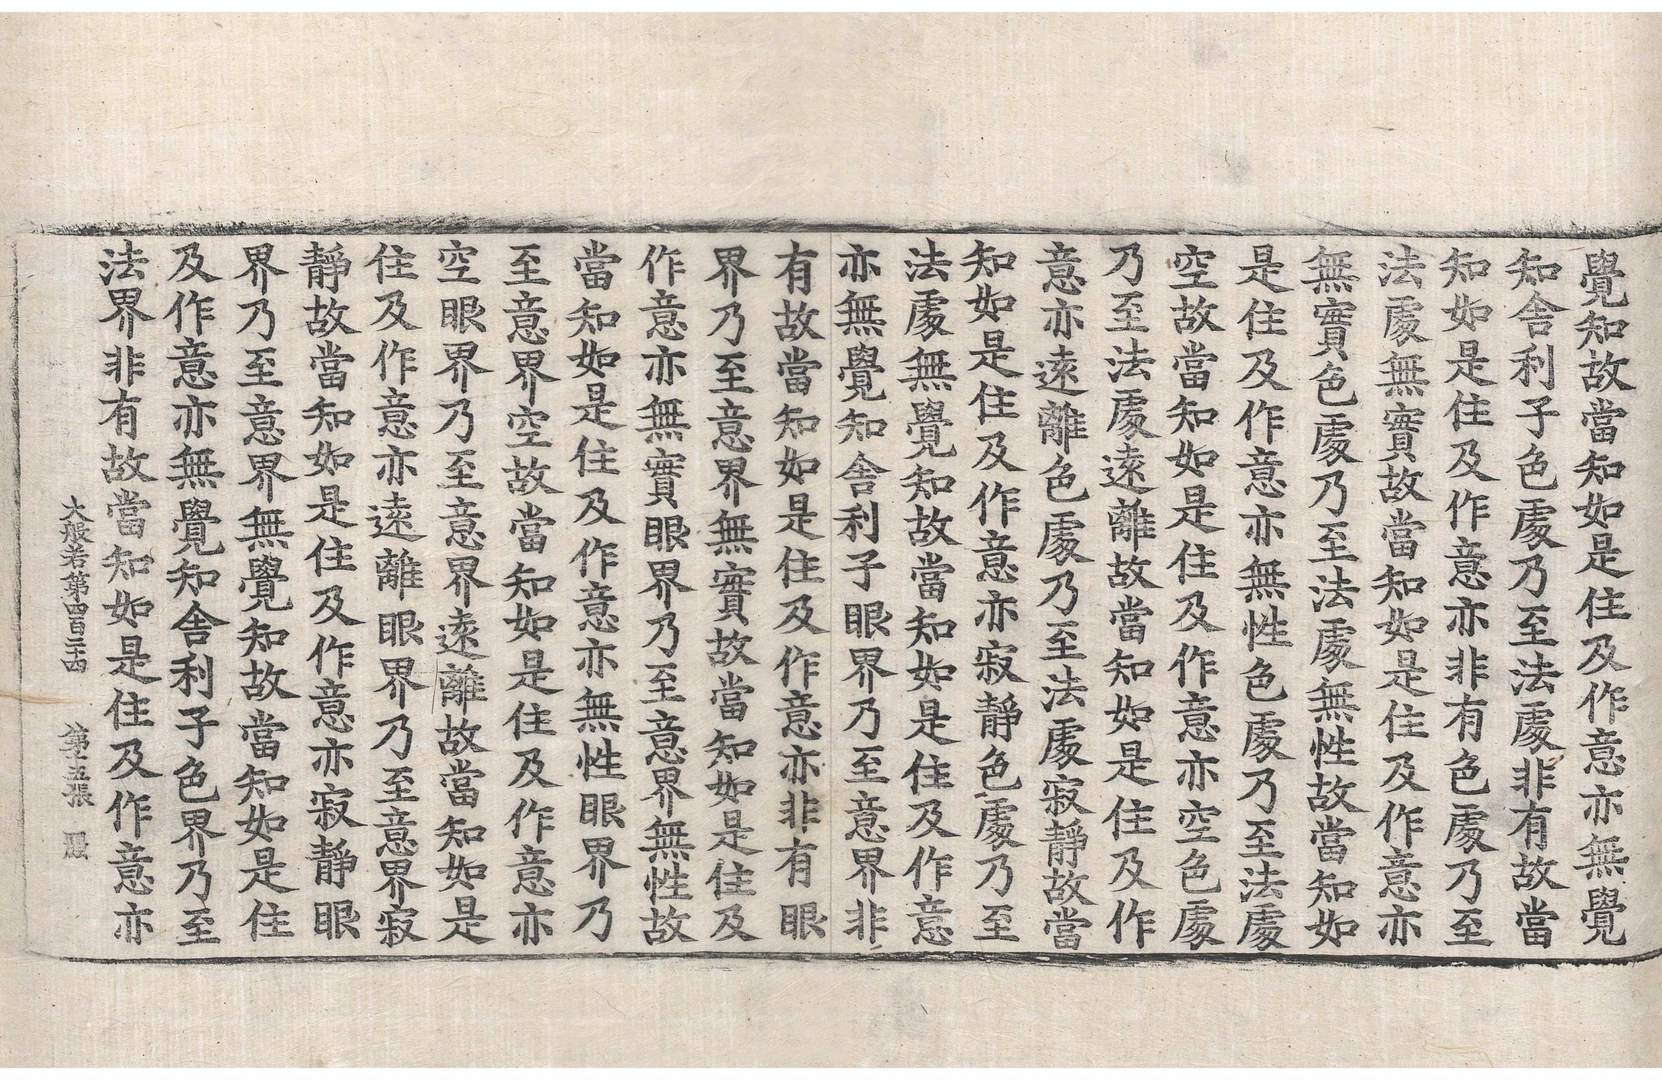 覺知故當知如是住及作意亦無覺
知舍利子色處乃至法處非有故當
知如是住及作意亦非有色處乃至
法處無實故當知如是住及作意亦
無實色處乃至法處無性故當知如
是住及作意亦無性色處乃至法處
空故當知如是住及作意亦空色處
乃至法處遠離故當知如是住及作
意亦遠離色處乃至法處寂靜故當
知如是住及作意亦寂靜色處乃至
法處無覺知故當知如是住及作意
亦無覺知舍利子眼界乃至意界非
有故當知如是住及作意亦非有眼
界乃至意界無實故當知如是住及
作意亦無實眼界乃至意界無性故
當知如是住及作意亦無性眼界乃
至意界空故當知如是住及作意亦
空眼界乃至意界遠離故當知如是
住及作意亦遠離眼界乃至意界寂
靜故當知如是住及作意亦寂靜眼
界乃至意界無覺知故當知如是住
及作意亦無覺知舍利子色界乃至
法界非有故當知如是住及作意亦
大般若第四百二十四 第十五張